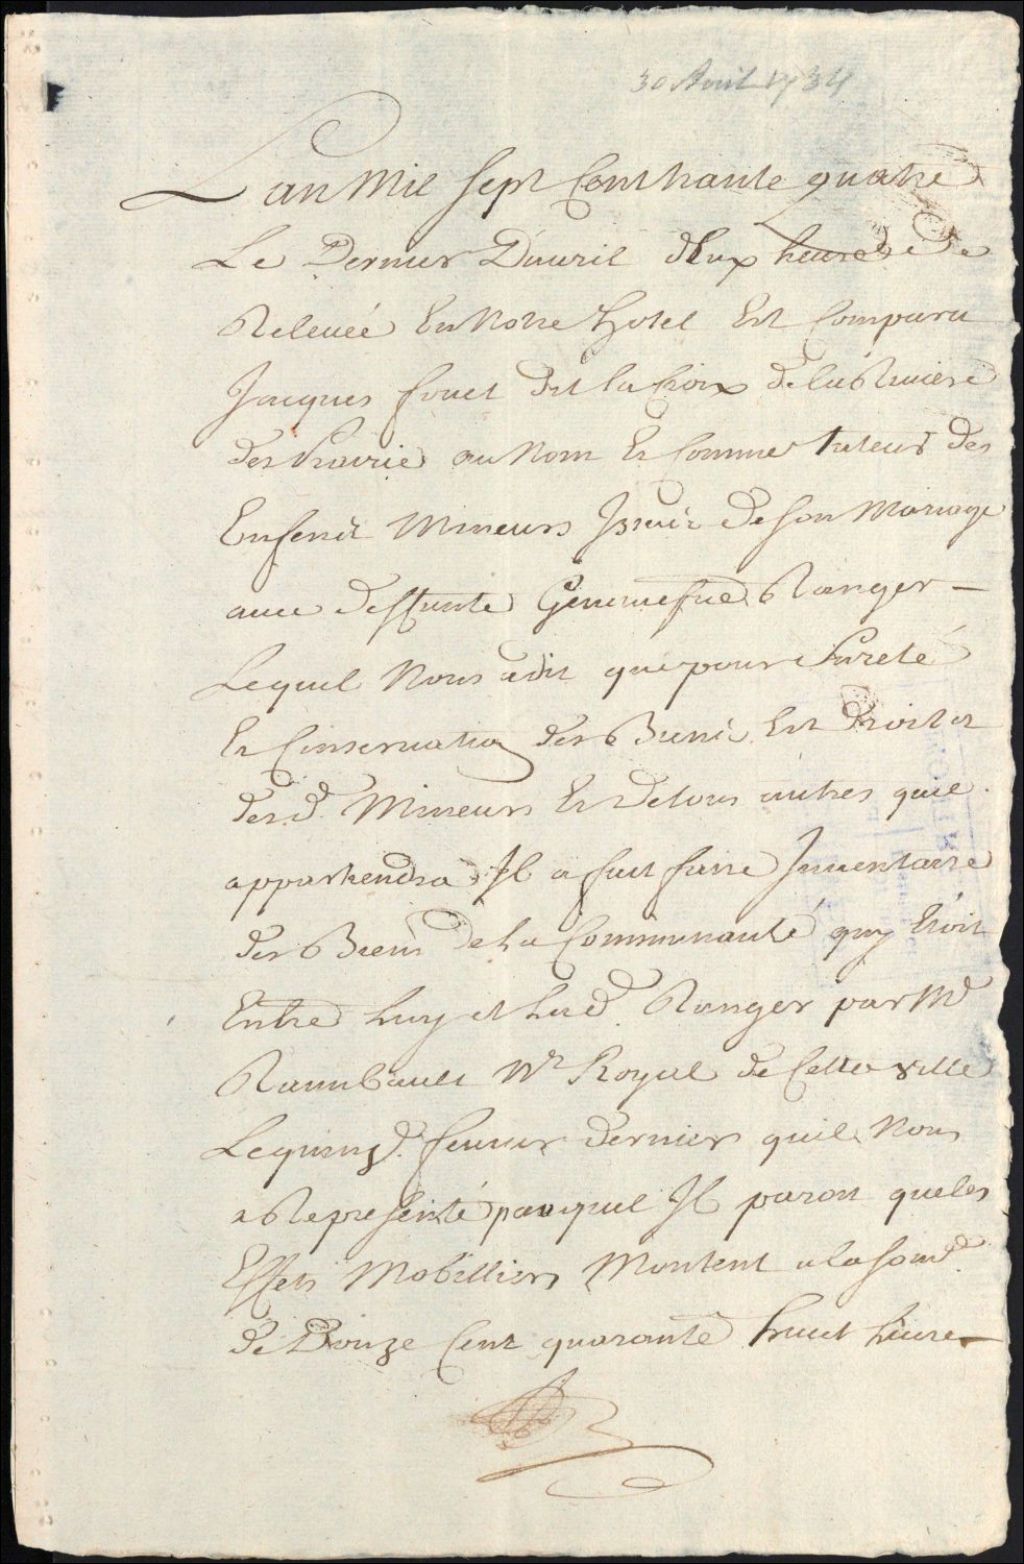 30 Avril 1734
Lan Mil Sept Cent trante quatre
Le Dernier Dauril deux heures de
Releueé En Notre hotel Est Comparu
Jacques fouet dit la Croix de la Riuiere
des Prairie au Nom Et Comme tuteur des
Enfents Mineurs Issuës de son Mariage
auec deffunte Geneuiefue Ranger —
Lequel Nous a dit que pour Sureté
Et Conseruation des Biens Et droits et
desd. Mineurs Et de tous autres quil
appartiendra Il a fait faire Inuentaire
des Biens de la Communauté quy Etoit
Entre luy et lad. Ranger par Me
Raimbault Nre Royal de Cette Ville
Le quinze feurier dernier quil Nous
a Representé par quel Il paroit que les
Effets Mobilliers Montent a la some
de Donze Cent quarante huit liure —